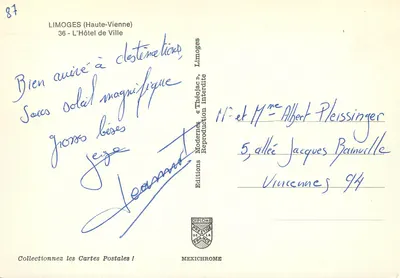 87
LIMOGES (Haute-Vienne)
36 - L'Hôtel de Ville
Bien arrivé à destination,
Sous soleil magnifique
grosses bises
Editions Modernes « Théojac », Limoges
Reproduction interdite
Mr et Mme Albert Pleissinger
5, allée Jacques Bainville
Vincennes 94
Collectionnez les Cartes Postales !
MEXICHROME